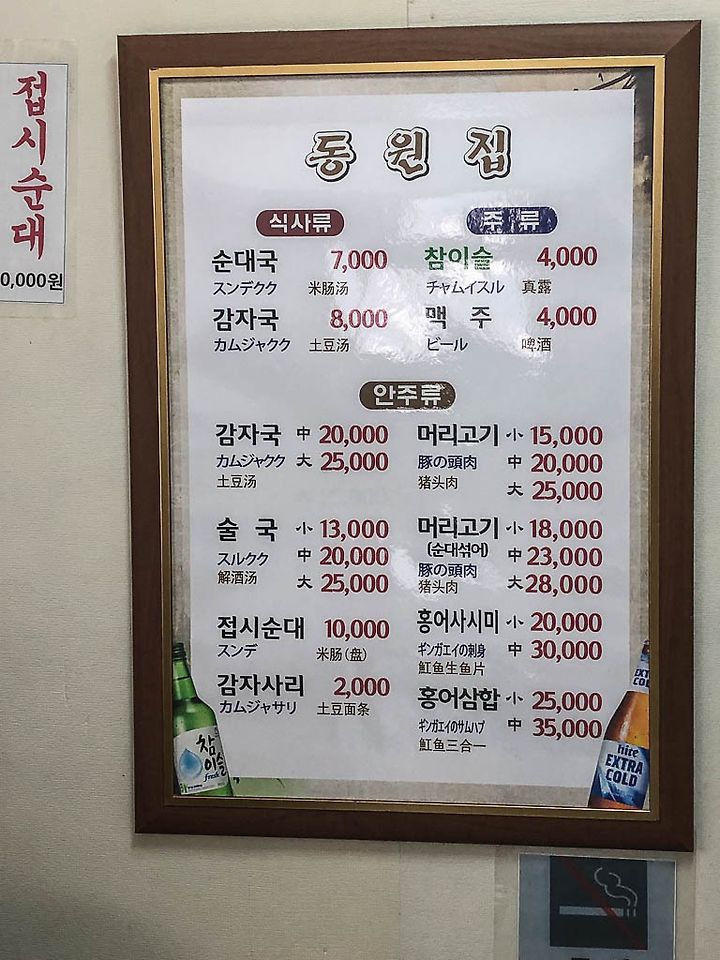 접시순대
0,000원
동원집
식사류
순대국 7,000
スンデクク 米肠汤
감자국 8,000
カムジャクク 土豆汤
주류
참이슬 4,000
チャムイスル 真露
맥 주 4,000
ビール 啤酒
안주류
감자국 中 20,000
カムジャクク 大 25,000
土豆汤
술 국 小 13,000
スルクク 中 20,000
解酒汤 大 25,000
접시순대 10,000
スンデ 米肠(盘)
감자사리 2,000
カムジャサリ 土豆面条
머리고기 小 15,000
豚の頭肉 中 20,000
猪头肉 大 25,000
머리고기 小 18,000
(순대섞어) 中 23,000
豚の頭肉
猪头肉 大 28,000
홍어사시미 小 20,000
ギンガエイの刺身 中 30,000
魟鱼生鱼片
홍어삼합 小 25,000
ギンガエイのサムハプ 中 35,000
魟鱼三合一
참이슬
fresh
hite
EXTRA
COLD